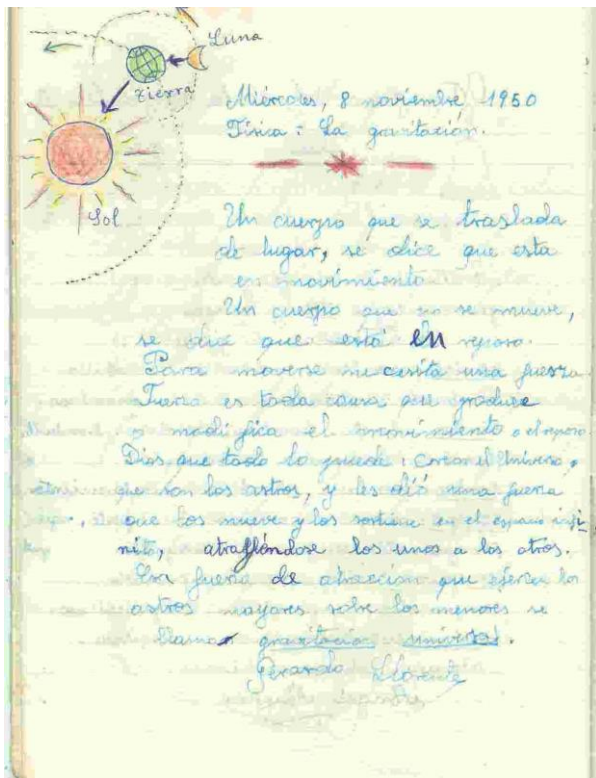 Luna
Tierra
Sol
Miércoles, 8 noviembre 1950
Física: La gravitación.
Un cuerpo que se traslada
de lugar, se dice que esta
en movimiento
Un cuerpo que no se mueve,
se dice que está en reposo.
Para moverse necesita una fuerza
Fuerza es toda causa que produce
o modifica el movimiento o el reposo
Dios, que todo lo puede, creo el Universo,
que son los astros, y les dió una fuerza
que los mueve y los sostiene en el espacio infi-
nito, atrayéndose los unos a los otros.
Esa fuerza de atraccion que ejercen los
astros mayores sobre los menores se
llama gravitacion universal.
Gerardo Llorente